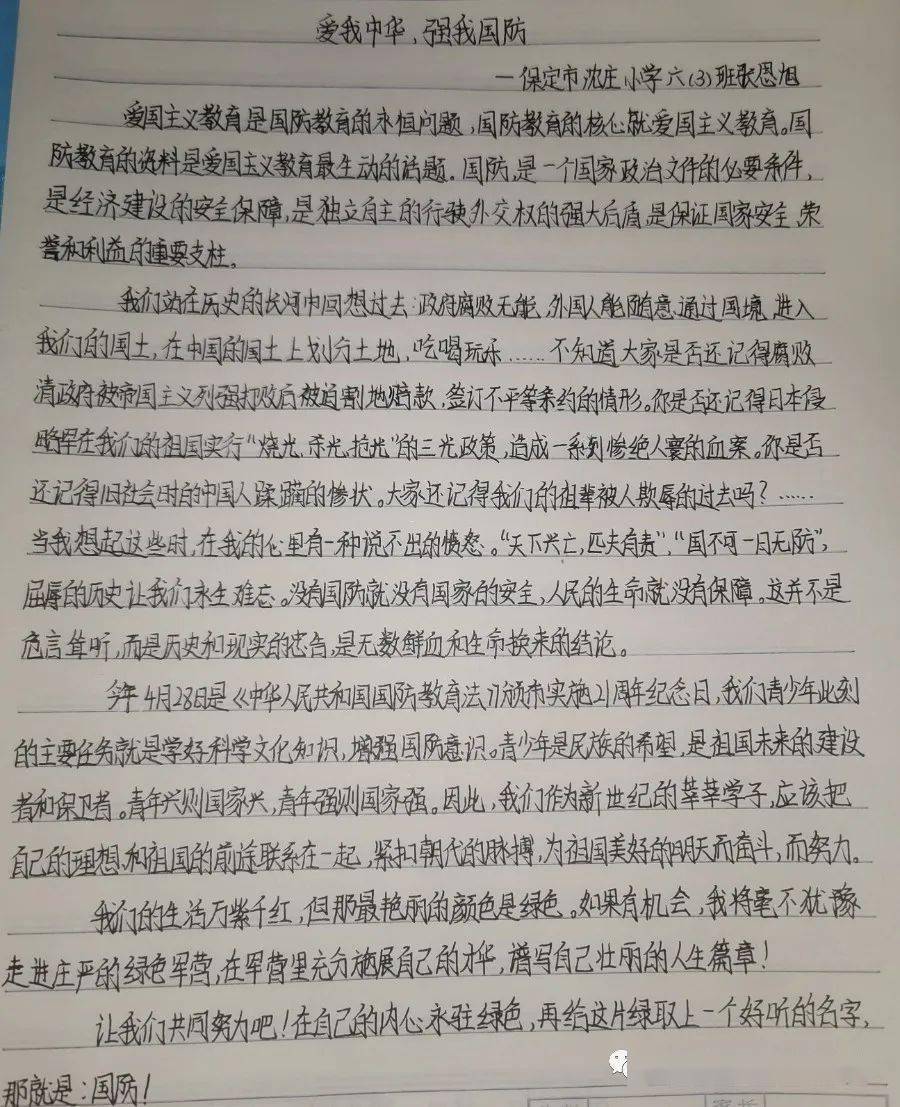 爱我中华,强我国防
—保定市沈庄小学六(3)班张恩旭
爱国主义教育是国防教育的永恒问题,国防教育的核心就爱国主义教育。国
防教育的资料是爱国主义教育最生动的话题。国防,是一个国家政治文件的必要条件,
是经济建设的安全保障,是独立自主的行驶外交权的强大后盾,是保证国家安全、荣
誉和利益的重要支柱。
我们站在历史的长河中回想过去:政府腐败无能,外国人能随意通过国境,进入
我们的国土,在中国的国土上划分土地,吃喝玩乐……不知道大家是否还记得腐败
清政府被帝国主义列强打败后被迫割地赔款,签订不平等条约的情形。你是否还记得日本侵
略军在我们的祖国实行“烧光、杀光、抢光”的三光政策,造成一系列惨绝人寰的血案。你是否
还记得旧社会时的中国人蹂躏的惨状。大家还记得我们的祖辈被人欺辱的过去吗?……
当我想起这些时,在我的心里有一种说不出的愤怒。“天下兴亡,匹夫有责”,“国不可一日无防”,
屈辱的历史让我们永生难忘。没有国防就没有国家的安全,人民的生命就没有保障。这并不是
危言耸听,而是历史和现实的忠告,是无数鲜血和生命换来的结论。
今年4月28日是《中华人民共和国国防教育法》颁布实施21周年纪念日,我们青少年此刻
的主要任务就是学好科学文化知识,增强国防意识。青少年是民族的希望,是祖国未来的建设
者和保卫者。青年兴则国家兴,青年强则国家强。因此,我们作为新世纪的莘莘学子,应该把
自己的理想和祖国的前途联系在一起,紧扣朝代的脉搏,为祖国美好的明天而奋斗,而努力。
我们的生活万紫千红,但那最艳丽的颜色是绿色。如果有机会,我将毫不犹豫
走进庄严的绿色军营,在军营里充分施展自己的才华,谱写自己壮丽的人生篇章!
让我们共同努力吧!在自己的内心永驻绿色,再给这片绿取上一个好听的名字,
那就是:国防!